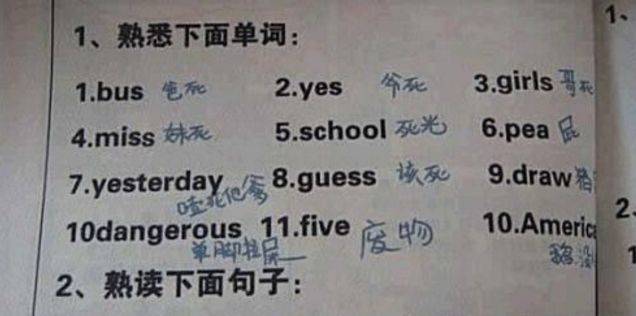 1、熟悉下面单词： 1、
1.bus 爸死 2.yes 爷死 3.girls 哥死
4.miss 妹死 5.school 死光 6.pea 屁
7.yesterday 噎死他爹 8.guess 该死 9.draw
2.
10dangerous 单脚拉屎 11.five 废物 10.Americ
2、熟读下面句子：